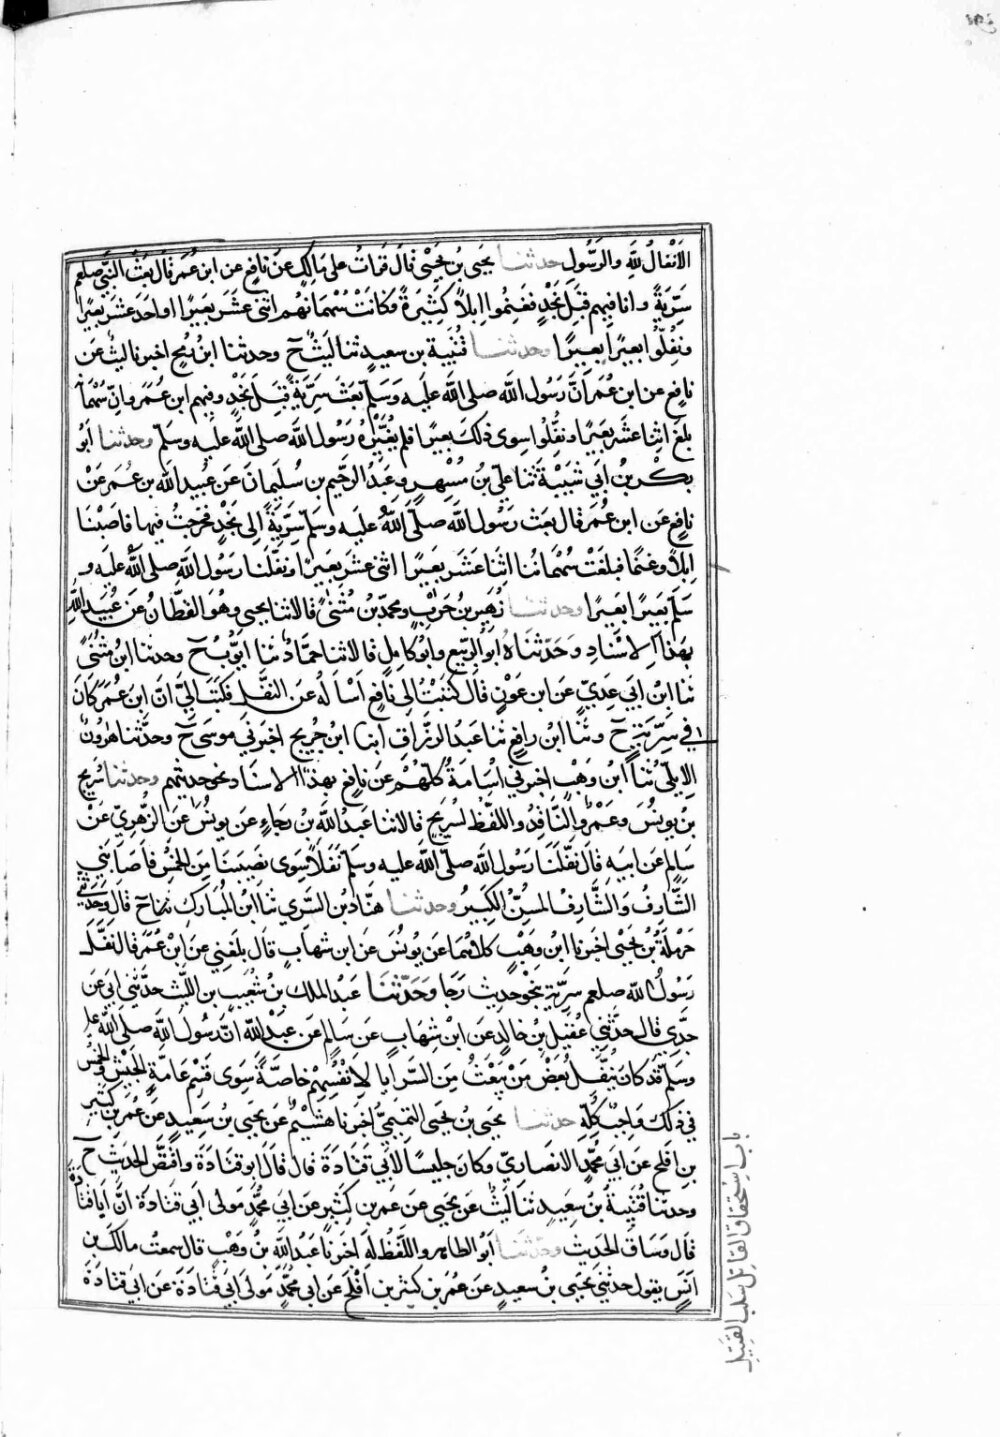 الاَنْفالُ للهِ والرَّسُول حدثنا يحيى بن يَحْيَى قال قراتُ على مَالِكٍ عَنْ نافِعٍ عن ابن عُمَرَ قال بَعَثَ النَّبِيّ صلعم
سَرِيَّةً وانا فيهم قِبَلَ نَجْدٍ فغَنِمُوا اِبِلًا كَثِيرَةً فكانَتْ سُهْمَانُهُم اثنى عَشَر بَعِيرًا او احَدَ عشَر بعِيرًا
ونُفِّلُوا بعيرًا بعيرًا وحدثنا قُتَيبة بن سعيدٍ ثنا لَيثٌ ح وحدثنا ابنُ رُمحٍ اخبرنا ليثٌ عَن
نافعٍ عن ابن عُمَر انَّ رَسُول الله صلى الله عليه وَسَلَّم بَعَثَ سَرِيَّةً قِبَلَ نَجْدٍ وفيهم ابن عُمَرَ وان سُهْمَانهم
بلغَ اثنا عشَر بَعِيرًا ونُفِّلُوا سِوى ذلكَ بَعِيرًا فلم يُغَيِّرْهُ رَسُولُ الله صلى الله عليه وسلم وحدثنا ابُو
بكْرِ بنُ ابي شَيْبَةَ ثنا عليُّ بنُ مُسْهِرٍ وعَبْدُ الرّحِيم بن سُليمانَ عَن عُبيد الله بن عُمَر عَنْ
نافعٍ عَن ابن عُمَر قال بعَثَ رَسُولُ الله صلّى الله عليه وسلم سَرِيَّةً اِلى نَجْدٍ فخرجتُ فيها فاصَبْنَا
اِبلًا وغنمًا فبلغَتْ سُهْمَانُنا اثنا عَشَر بَعِيرًا اثنى عشَر بعيرًا ونفَّلَنا رَسُول الله صلى الله عليه و
سَلّم بعيرًا بعيرًا وحدثنا زُهَير بن حَربٍ ومحمد بنُ مُثنىً قالا ثنا يحيى وهُو القطّانُ عَن عُبَيدِ اللهِ
بهذا الاِسْنادِ وَحَدّثناهُ ابُو الرَّبيع وابُو كامِلٍ قالا ثنا حمّادٌ ثنا ايّوُبُ ح وحدثنا ابنُ مُثنىً
ثنا ابْنُ ابي عَدِيٍّ عَن ابن عَوْنٍ قال كتَبْتُ الى نافِعٍ اَسْالُهُ عَن النَّفَل فكتَبَ اليَّ انّ ابنَ عُمَرَ كانَ
في سَرِيَّةٍ ح وثنا ابن رافعٍ ثنا عَبدُ الرَّزاقِ ابنا ابن جُريجٍ اخبرني موسى ح وحدَّثنا هارُونُ
الاَيليُّ ثنا ابنُ وَهْبٍ اخبرني اُسَامَةُ كلّهُمْ عَن نافعٍ بهذا الاسناد نحو حديثهم وحدثنا سُرَيجُ
بن يونُسَ وعَمْرٌو النَّاقِدُ واللفظُ لسُرَيجٍ قالا ثنا عبدُ الله بنُ رجاءٍ عن يونُسَ عن الزّهريّ عَنْ
سَالمٍ عن ابيه قال نفّلنَا رَسُول الله صلّى الله عليه وسلم نفَلًا سِوى نَصِيبَنا مِنَ الخُمُسِ فاَصَابَني
الشَّارِفُ وَالشَّارِفُ المسِنُّ الكَبيرُ وحدثنا هنّادُ بن السَّري ثنا ابنُ المُبارَك ح قال وحدّثني
حَرملةُ بنُ يَحْيَى اخبرنا ابنُ وَهْبٍ كلاهُمَا عَن يونُسَ عَن ابن شهابٍ قال بلغني عَن ابْنِ عُمَرَ قال نفَّلَ
رَسُولُ الله صلعم سَرِيّةً بنَحْو حديث رَجَا وحَدّثنا عبدُ الملك بنُ شُعَيبِ بن اللّيث حدّثني ابي عَن
جَدّي قال حدَّثني عُقَيلُ بن خالدٍ عَن ابْنِ شِهَابٍ عَن سَالمٍ عَن عبْدِ الله انّ رَسُول الله صلى الله عليه
وسلّم قَد كان يُنَفِّلُ بَعْضَ مَن يَبْعَثُ مِنَ السَّرايا لاَنفُسِهِمْ خاصّةً سِوى قَسْمِ عَامّةِ الجيْش والخُمُسُ
في ذلك واجِبٌ كلّهِ حدثنا يحيى بن يحيَى التميميُّ اخبرنا هشَيْمٌ عَن يحيى بن سَعِيدٍ عَن عُمَر بن كثيرِ
بن افلحَ عَن ابي محمّدٍ الانصاري وكانَ جليسًا لاَبي قتَادَةَ قال قال ابو قتادَةَ واقتَصَّ الحَديث ح
وحدثنا قُتَيبة بنُ سعيدٍ ثنا لَيثٌ عَن يحيى عَن عمر بن كثيرٍ عن ابي محمّدٍ مَولى ابي قتادَة انَّ ابا قتادَةَ
قال وَساقَ الحَديث وحدّثنا ابُو الطاهر واللّفظُ له اخبرنا عَبدُ الله بنُ وَهْبٍ قال سمعتُ مالك بن
انَسٍ يقول حدثني يحيى بن سعيدٍ عَن عُمَر بن كثير بن افْلحَ عَن ابي محمّدٍ مَولى ابي قتادَة عَن ابي قتادَةَ
باب استحقاق القاتل سلب القتيل